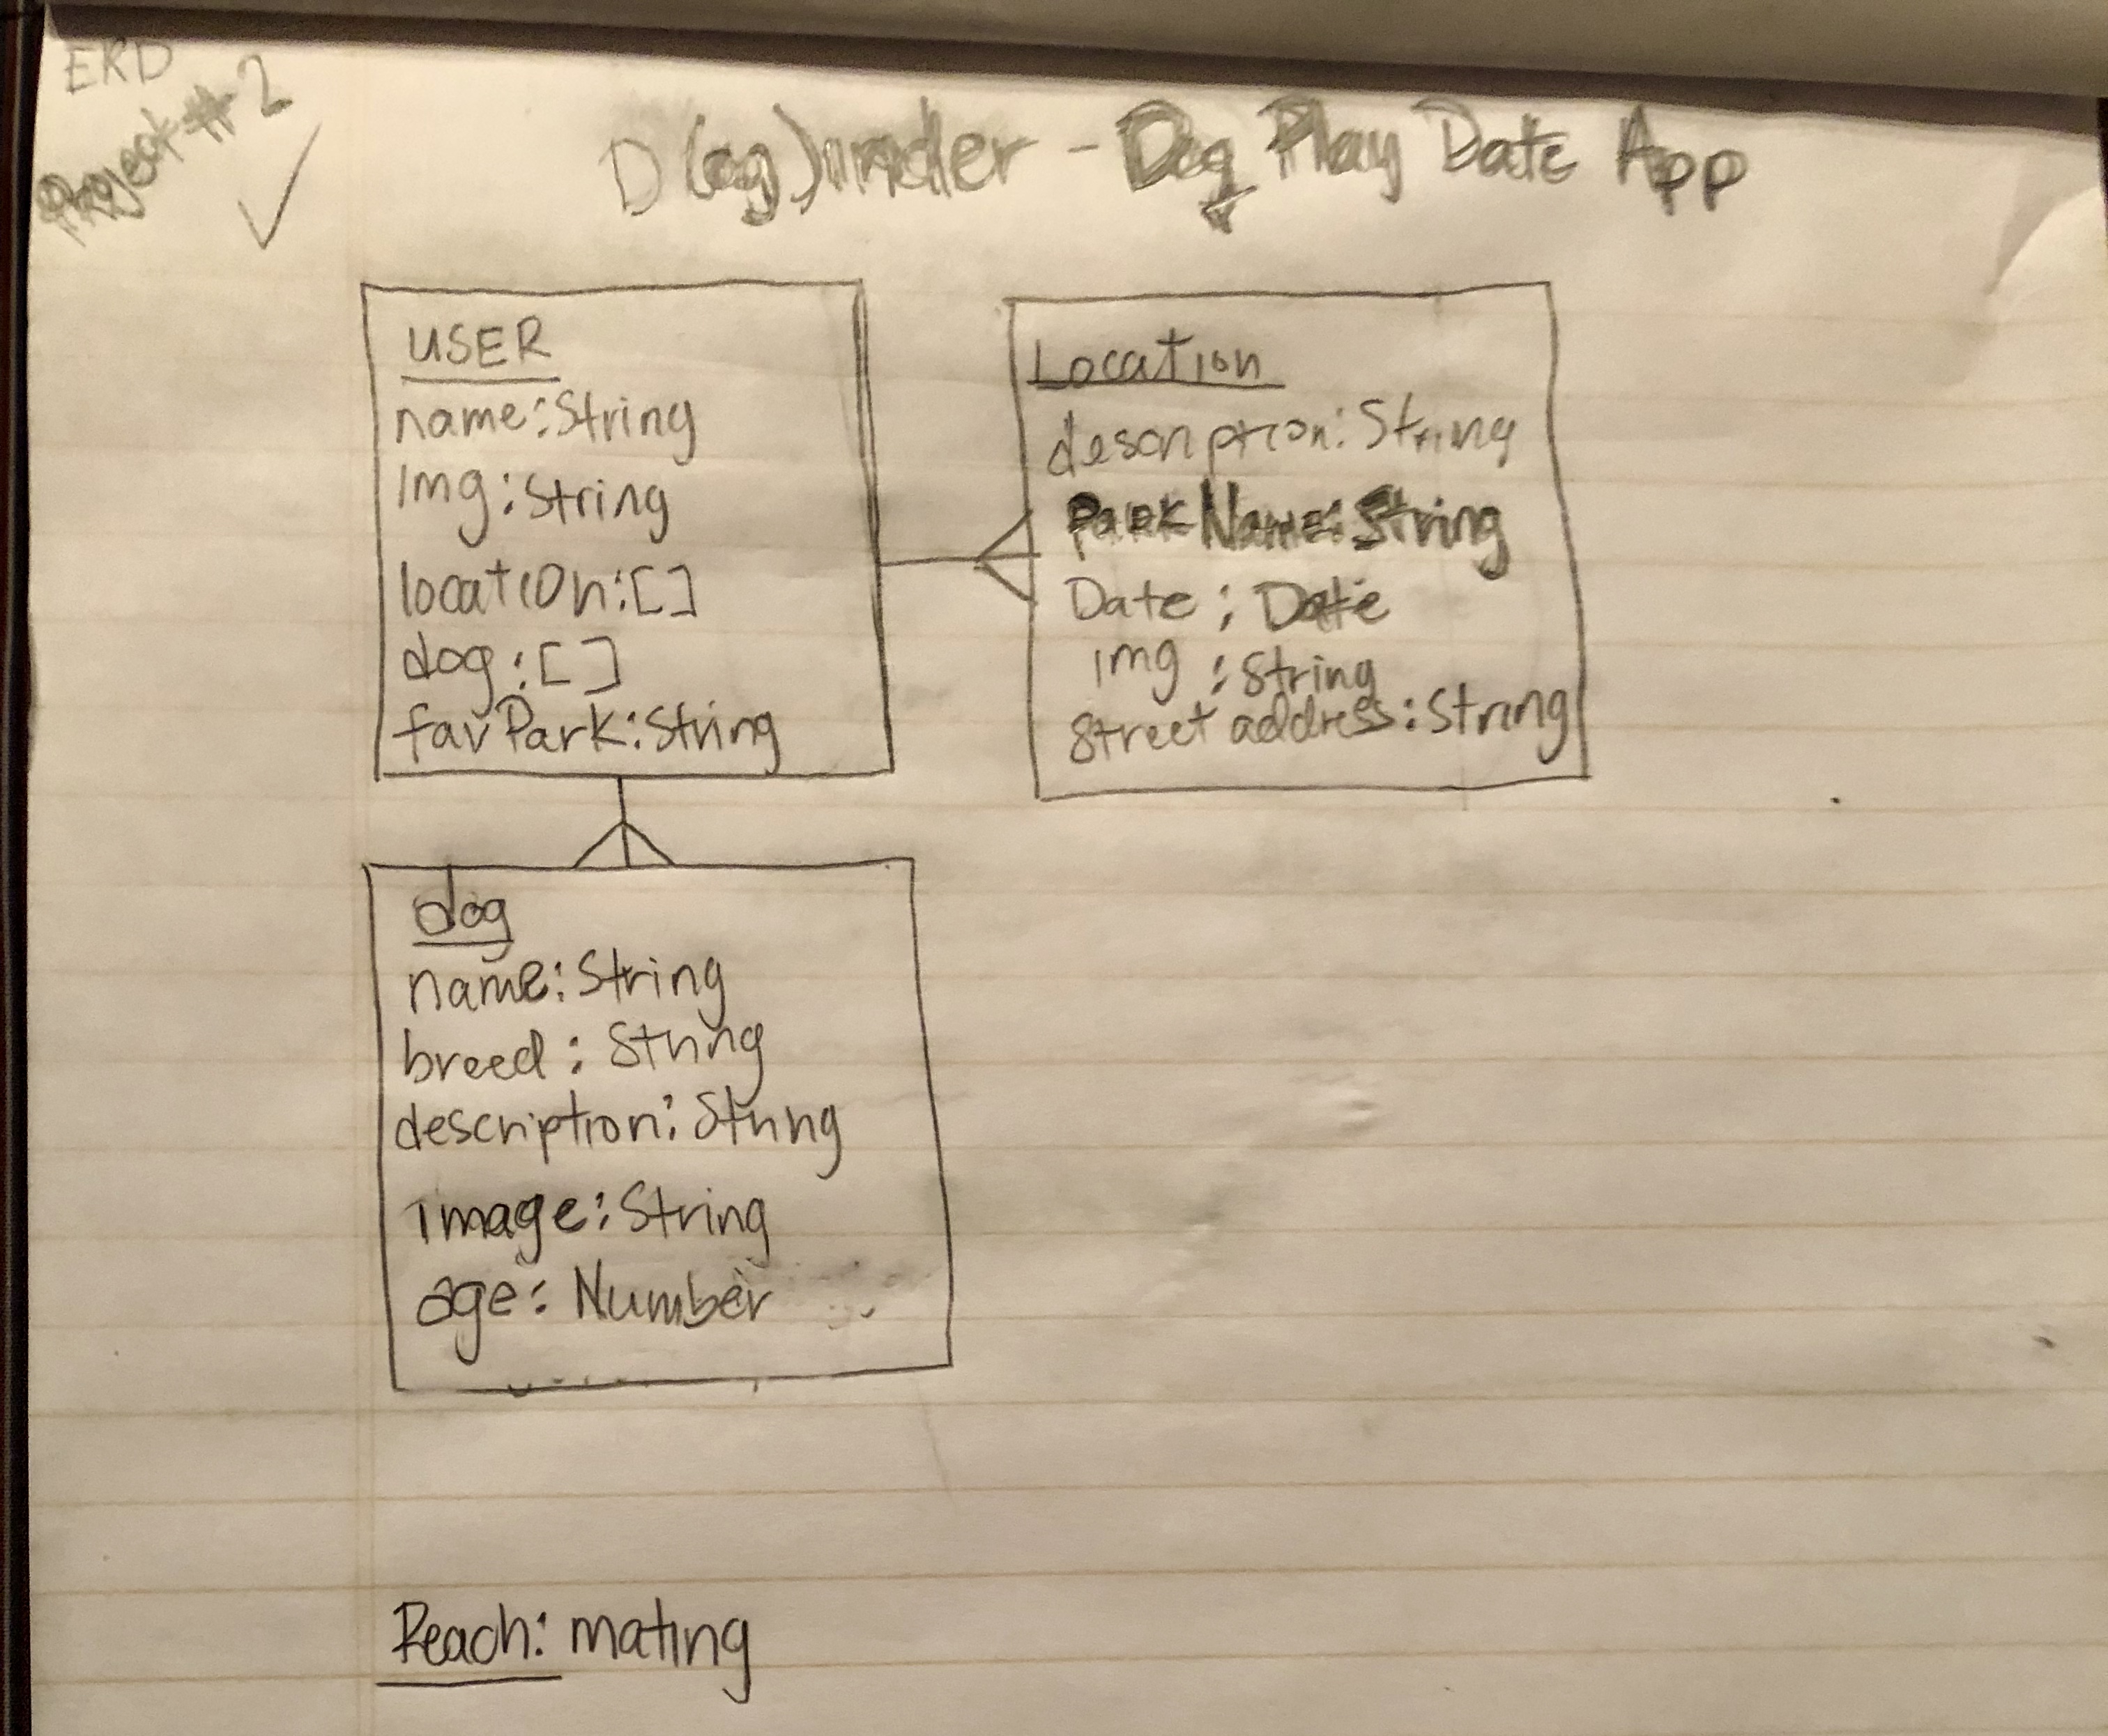 ERD
Project #2
D(og)inder - Dog Play Date App
USER
name: String
img: String
location: []
dog: []
favPark: String
Location
description: String
Park Name: String
Date: Date
img: String
street address: String
dog
name: String
breed: String
description: String
image: String
age: Number
Reach: mating